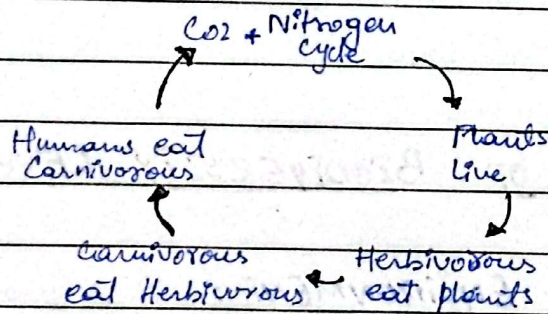 CO2 + Nitrogen
Cycle
Plants
Live
Herbivorous
eat plants
Carnivorous
eat Herbivorous
Humans eat
Carnivorous